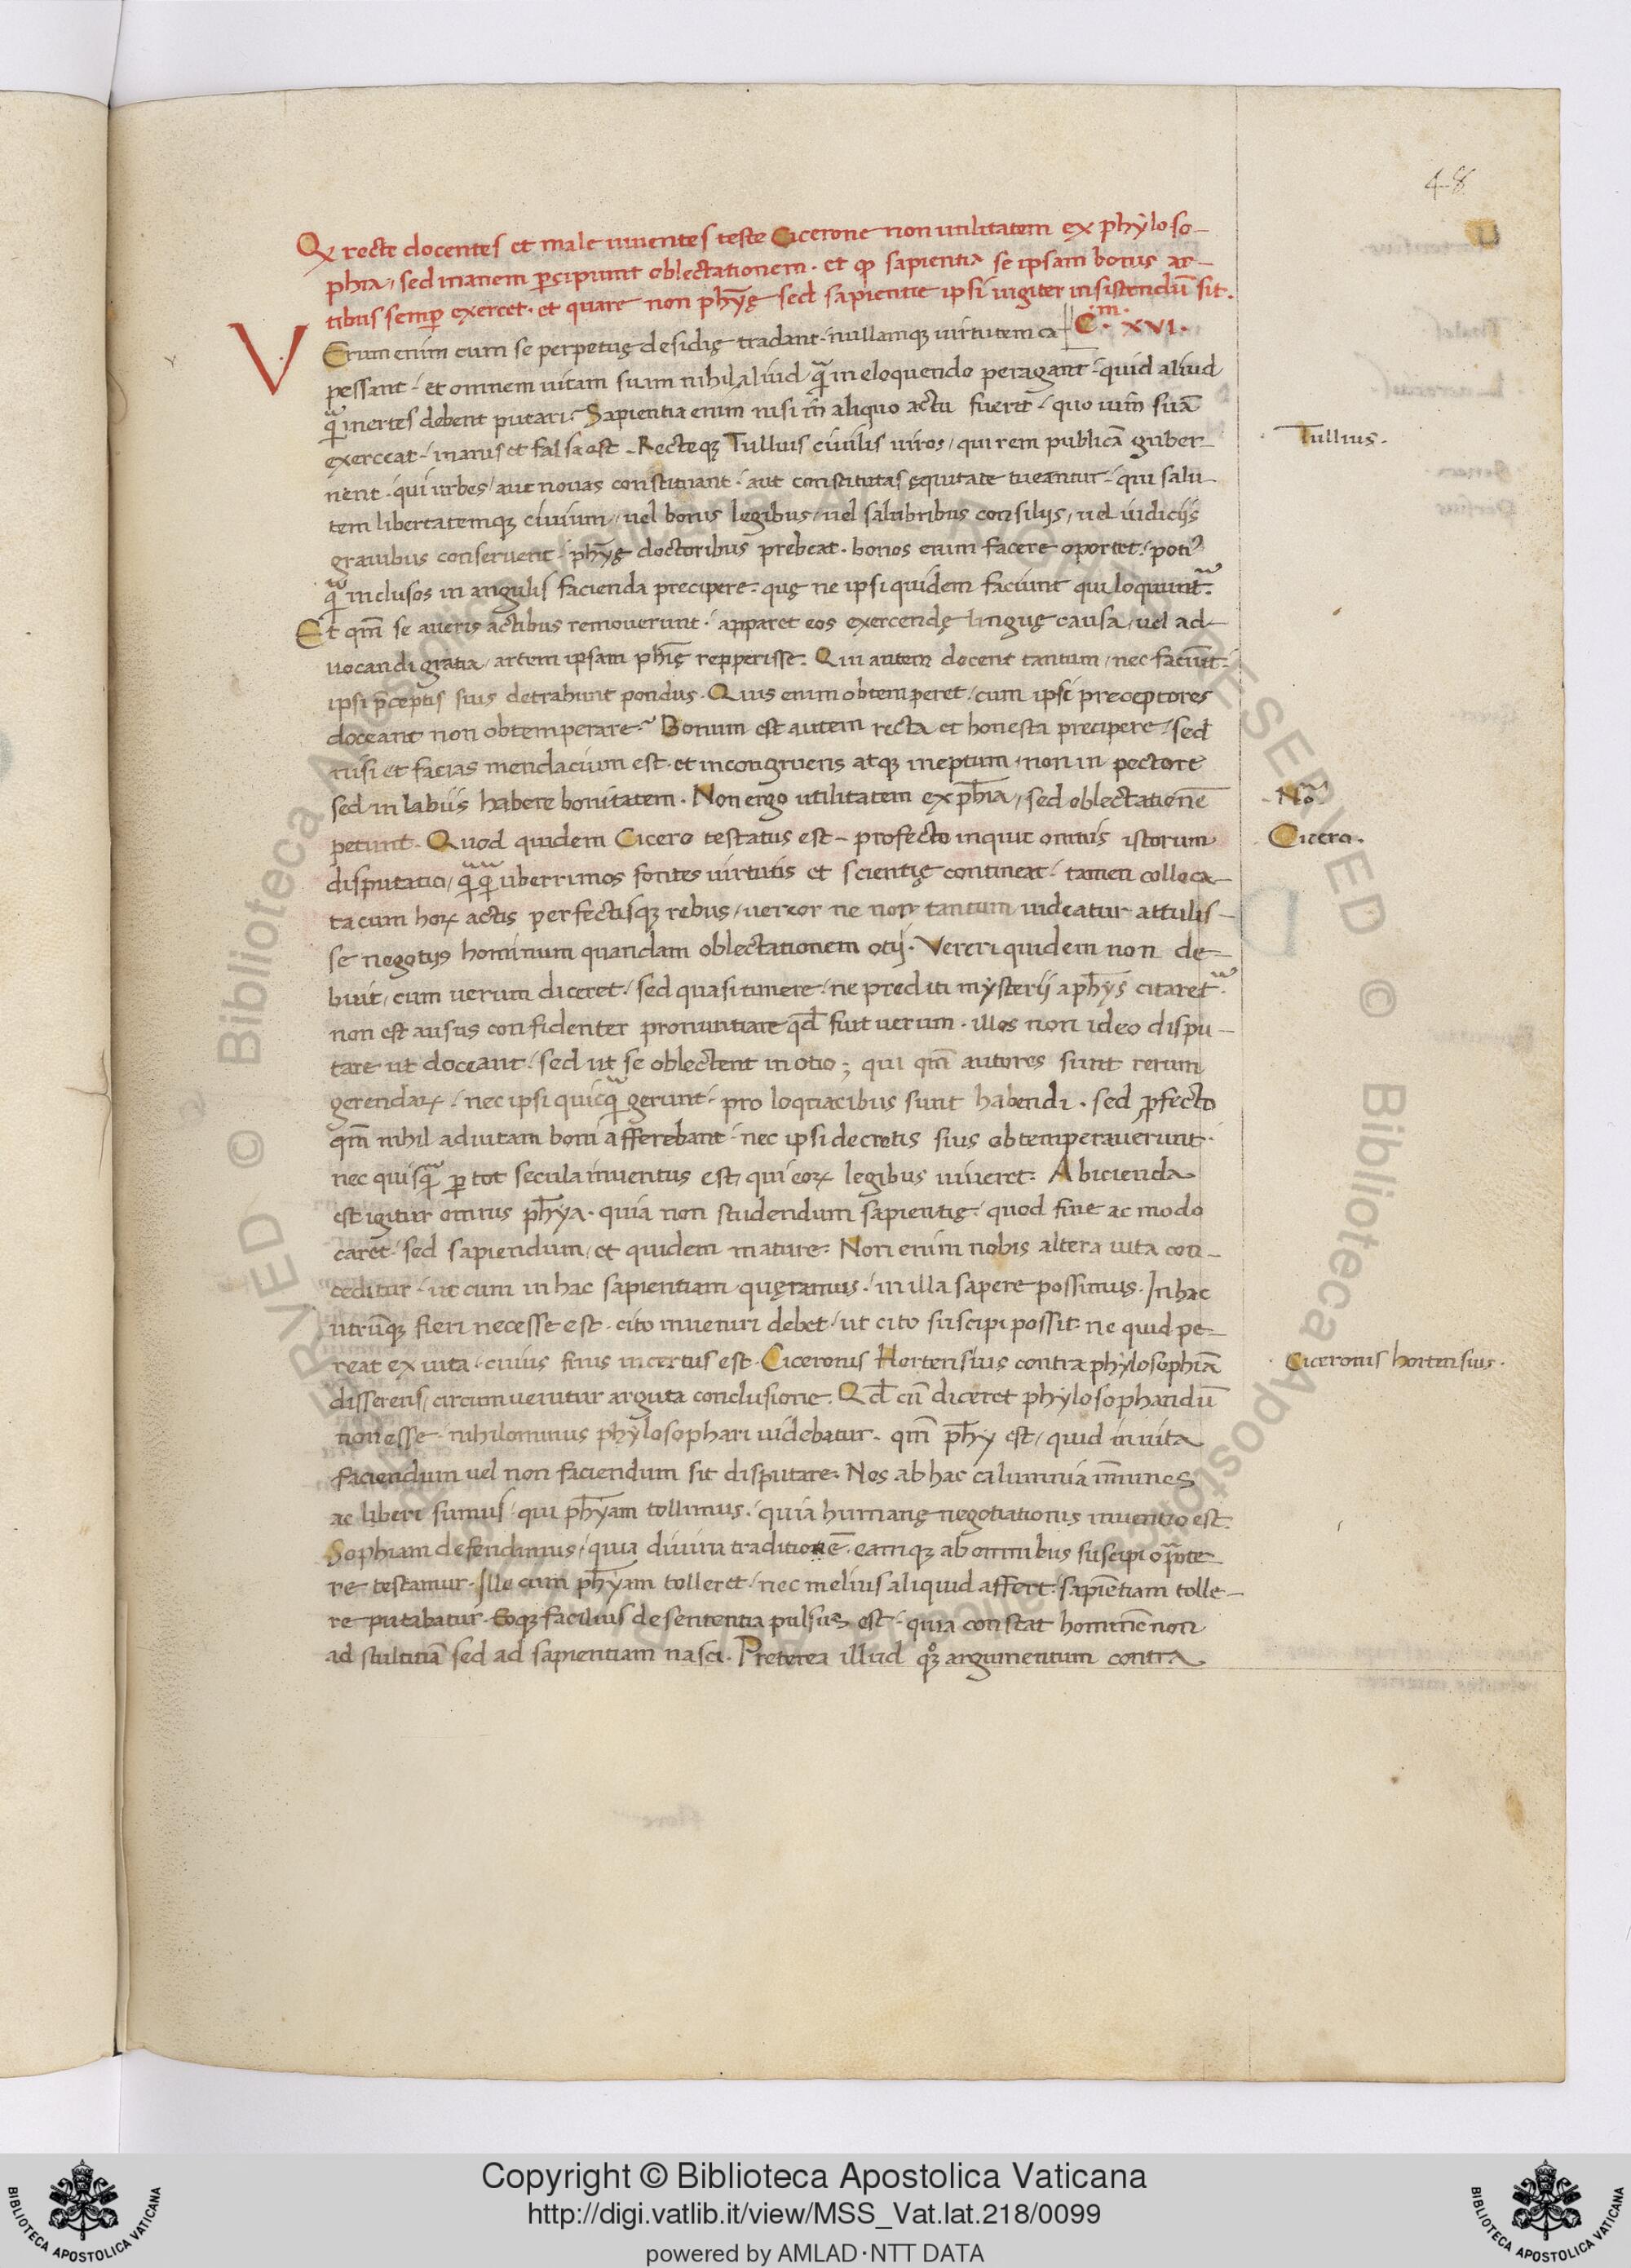 48
Qꝙ recte docentes et male uiuentes teste Cicerone non utilitatem ex phyloso-
phia, sed inanem ꝑcipiunt oblectationem. et ꝙ sapientia se ipsam bonis ar-
tibus semꝑ exercet. et quare non phyę sed sapientie ipsi iugiter insistendū sit.
C.m XVI.
VErum enim cum se perpetuę desidię tradant. nullamqꝫ uirtutem ca-
pessant. et omnem uitam suam nihil aliud q̃ in eloquendo peragant. quid aliud
q̃ inertes debent putari. Sapientia enim nisi in aliquo actu fuerit. quo uim suā
exerceat. inanis et falsa est. Recteqꝫ Tullius ciuilis uiros, qui rem publicā guber-
Tullius.
nent. qui urbes, aut nouas constituant. aut constitutas ęquitate tueantur. qui salu
tem libertatemqꝫ ciuium, uel bonis legibus, uel salubribus consilijs, uel iudicijs
grauibus conseruent. phyę doctoribus prebeat. bonos enim facere oportet. poti᾽
q̃ inclusos in angulis facienda precipere. quę ne ipsi quidem faciunt qui loquunt᷑.
Et qm̄ se a ueris actibus remouerunt. apparet eos exercendę linguę causa, uel ad-
uocandi gratia, artem ipsam phię repperisse. Qui autem docent tantum, nec faciūt.
ipsi p̄ceptis suis detrahunt pondus. Quis enim obtemperet, cum ipsi preceptores
doceant non obtemperare. Bonum est autem recta et honesta precipere, sed
nisi et facias mendacium est. et incongruens atqꝫ ineptum, non in pectore
sed in labiis habere bonitatem. Non ergo utilitatem ex phīa, sed oblectationē
Nō
petunt. Quod quidem Cicero testatus est. profecto inquit omnis istorum
Cicero.
disputatio, q̃q̃ uberrimos fontes uirtutis et scientię contineat. tamen colloca-
ta cum hoꝝ actis perfectisqꝫ rebus, uereor ne non tantum uideatur attulis-
se negotijs hominum quandam oblectationem otij. Vereri quidem non de-
buit, cum uerum diceret. sed quasi timere. ne prediti mysterij a phys citaret᷑.
non est ausus confidenter pronuntiare qd̄ fuit uerum. illos non ideo dispu-
tare ut doceant. sed ut se oblectent in otio; qui qm̄ autores sunt rerum
gerendaꝝ. nec ipsi quicq̃ gerunt. pro loquacibus sunt habendi. sed ꝓfecto
qm̄ nihil ad uitam boni afferebant. nec ipsi decretis suis obtemperauerunt.
nec quisq̃ ꝑ tot secula inuentus est, qui eoꝝ legibus uiueret. Abicienda
est igitur omnis phya. quia non studendum sapientię. quod fine ac modo
caret. sed sapiendum, et quidem mature. Non enim nobis altera uita con-
ceditur. ut cum in hac sapientiam quęramus. in illa sapere possimus. In hac
utrūqꝫ fieri necesse est. cito inueniri debet. ut cito suscipi possit ne quid pe-
reat ex uita. cuius finis incertus est. Ciceronis Hortensius contra phylosophiā
Ciceronis hortensius.
disserens, circumuenitur arguta conclusione. Qd̄ cū diceret phylosophandū
non esse. nihilominus phylosophari uidebatur. qm̄ phy est, quid in uita
faciendum uel non faciendum sit disputare. Nos ab hac calumnia īmunes
ac liberi sumus. qui phyam tollimus. quia humanę negotiationis inuentio est.
Sophiam defendimus, quia diuina traditionē. eamqꝫ ab omnibus suscipi oporte-
re testamur. Ille cum phyam tolleret. nec melius aliquid affert. sapientiam tolle-
re putabatur. Eoqꝫ facilius de sententia pulsus est. quia constat hominē non
ad stultitiā sed ad sapientiam nasci. Preterea illud qꝫ argumentum contra
Copyright © Biblioteca Apostolica Vaticana
http://digi.vatlib.it/view/MSS_Vat.lat.218/0099
powered by AMLAD·NTT DATA
BIBLIOTECA APOSTOLICA VATICANA
BIBLIOTECA APOSTOLICA VATICANA